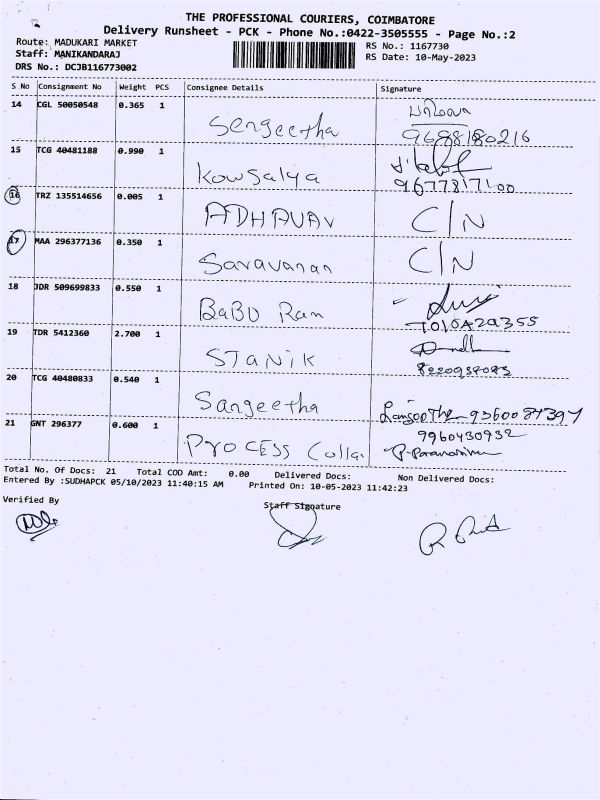 THE PROFESSIONAL COURIERS, COIMBATORE
Delivery Runsheet - PCK - Phone No.:0422-3505555 - Page No.:2
Route: MADUKARI MARKET
RS No.: 1167730
Staff: MANIKANDARAJ
RS Date: 10-May-2023
DRS No.: DCJB116773002
S No Consignment No Weight PCS Consignee Details Signature
14 CGL 50050548 0.365 1 Sengeetha
9698180216
15 TCG 40481188 0.990 1 Kowsalya
9677817100
16 TRZ 135514656 0.005 1 ADHAVAV C/N
17 MAA 296377136 0.350 1 Saravanan C/N
18 JDR 509699833 0.550 1 BaBU Ram
19 TDR 5412360 2.700 1 STANIK
20 TCG 40480833 0.540 1 Sangeetha
21 GNT 296377 0.600 1 PROCESS Colla
9960430932
Total No. Of Docs: 21 Total COD Amt: 0.00 Delivered Docs: Non Delivered Docs:
Entered By :SUDHAPCK 05/10/2023 11:40:15 AM Printed On: 10-05-2023 11:42:23
Verified By
Staff Signature